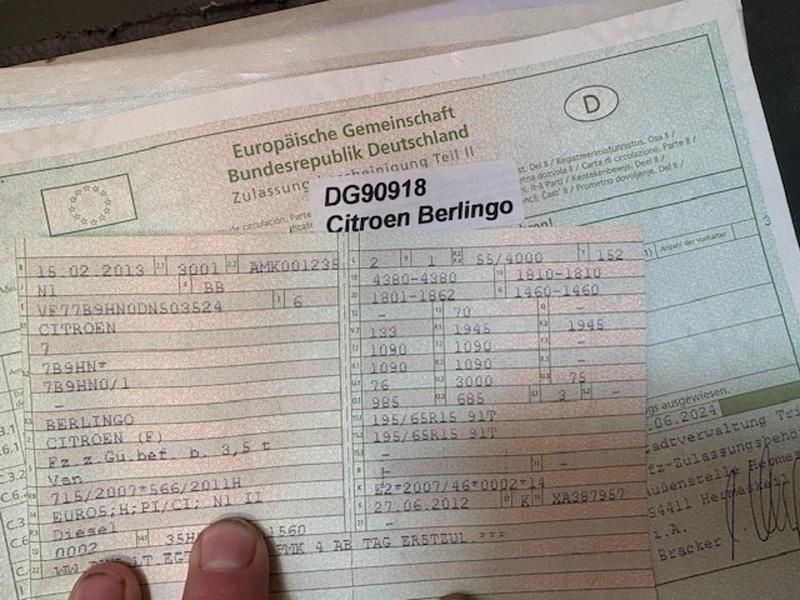 D
Europäische Gemeinschaft
Bundesrepublik Deutschland
Zulassung einigung Teil II
DG90918
Citroen Berlingo
15.02.2013 3001 AMK001235
N1 BB
VF77B9HN0DN503524 6
CITROEN
7
7B9HN*
7B9HN0/1
-
BERLINGO
CITROEN (F)
Fz.z.Gü.bef. b. 3,5 t
Van
715/2007*566/2011H
EURO5;H;PI/CI; N1 II
Diesel
0002 35H 1560
2 1 55/4000 152
4380-4380 1810-1810
1801-1862 1460-1460
- 70 -
133 1945 1945
1090 1090 -
1090 1090 -
76 3000 75
985 685 3 -
195/65R15 91T
195/65R15 91T
-
- -
E2*2007/46*0002*14
27.06.2012 K XA387957
-
4 AB TAG ERSTZUL.***
Anzahl der Vorhalter
ausgewiesen.
.06.2024
adtverwaltung
fz-Zulassungsbehö
ußenstelle Hermes
54411 Hermeskeil
i.A.
Bracker